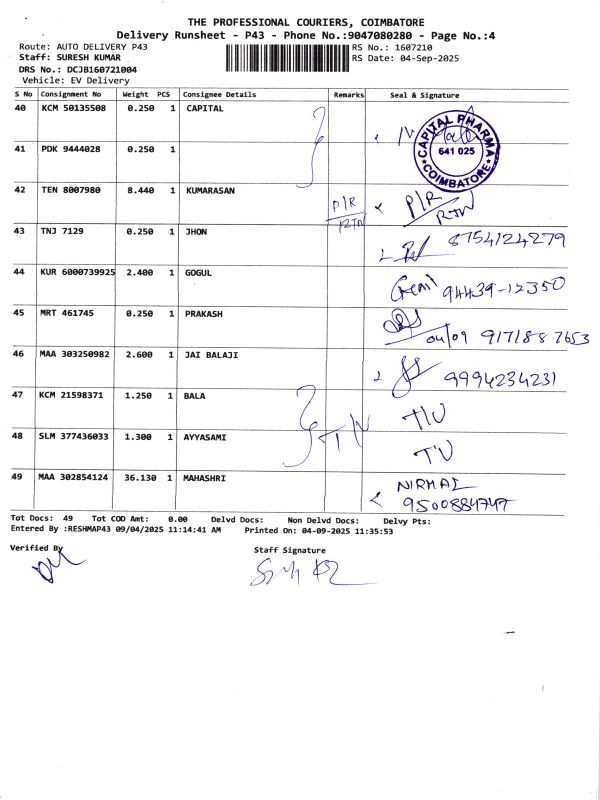 THE PROFESSIONAL COURIERS, COIMBATORE
Delivery Runsheet - P43 - Phone No.:9047080280 - Page No.:4
Route: AUTO DELIVERY P43
RS No.: 1607210
Staff: SURESH KUMAR
RS Date: 04-Sep-2025
DRS No.: DCJB160721004
Vehicle: EV Delivery
S No Consignment No Weight PCS Consignee Details Remarks Seal & Signature
40 KCM 50135508 0.250 1 CAPITAL
CAPITAL PHARMA
641 025
COIMBATORE
41 PDK 9444028 0.250 1
42 TEN 8007980 8.440 1 KUMARASAN P/R RTN P/R RTN
43 TNJ 7129 0.250 1 JHON 8754124279
44 KUR 6000739925 2.400 1 GOGUL 94439-12350
45 MRT 461745 0.250 1 PRAKASH 04/09 9171887653
46 MAA 303250982 2.600 1 JAI BALAJI 9994234231
47 KCM 21598371 1.250 1 BALA
48 SLM 377436033 1.300 1 AYYASAMI
49 MAA 302854124 36.130 1 MAHASHRI NIRMAL
9500884747
Tot Docs: 49 Tot COD Amt: 0.00 Delvd Docs: Non Delvd Docs: Delvy Pts:
Entered By :RESHMAP43 09/04/2025 11:14:41 AM Printed On: 04-09-2025 11:35:53
Verified By
Staff Signature